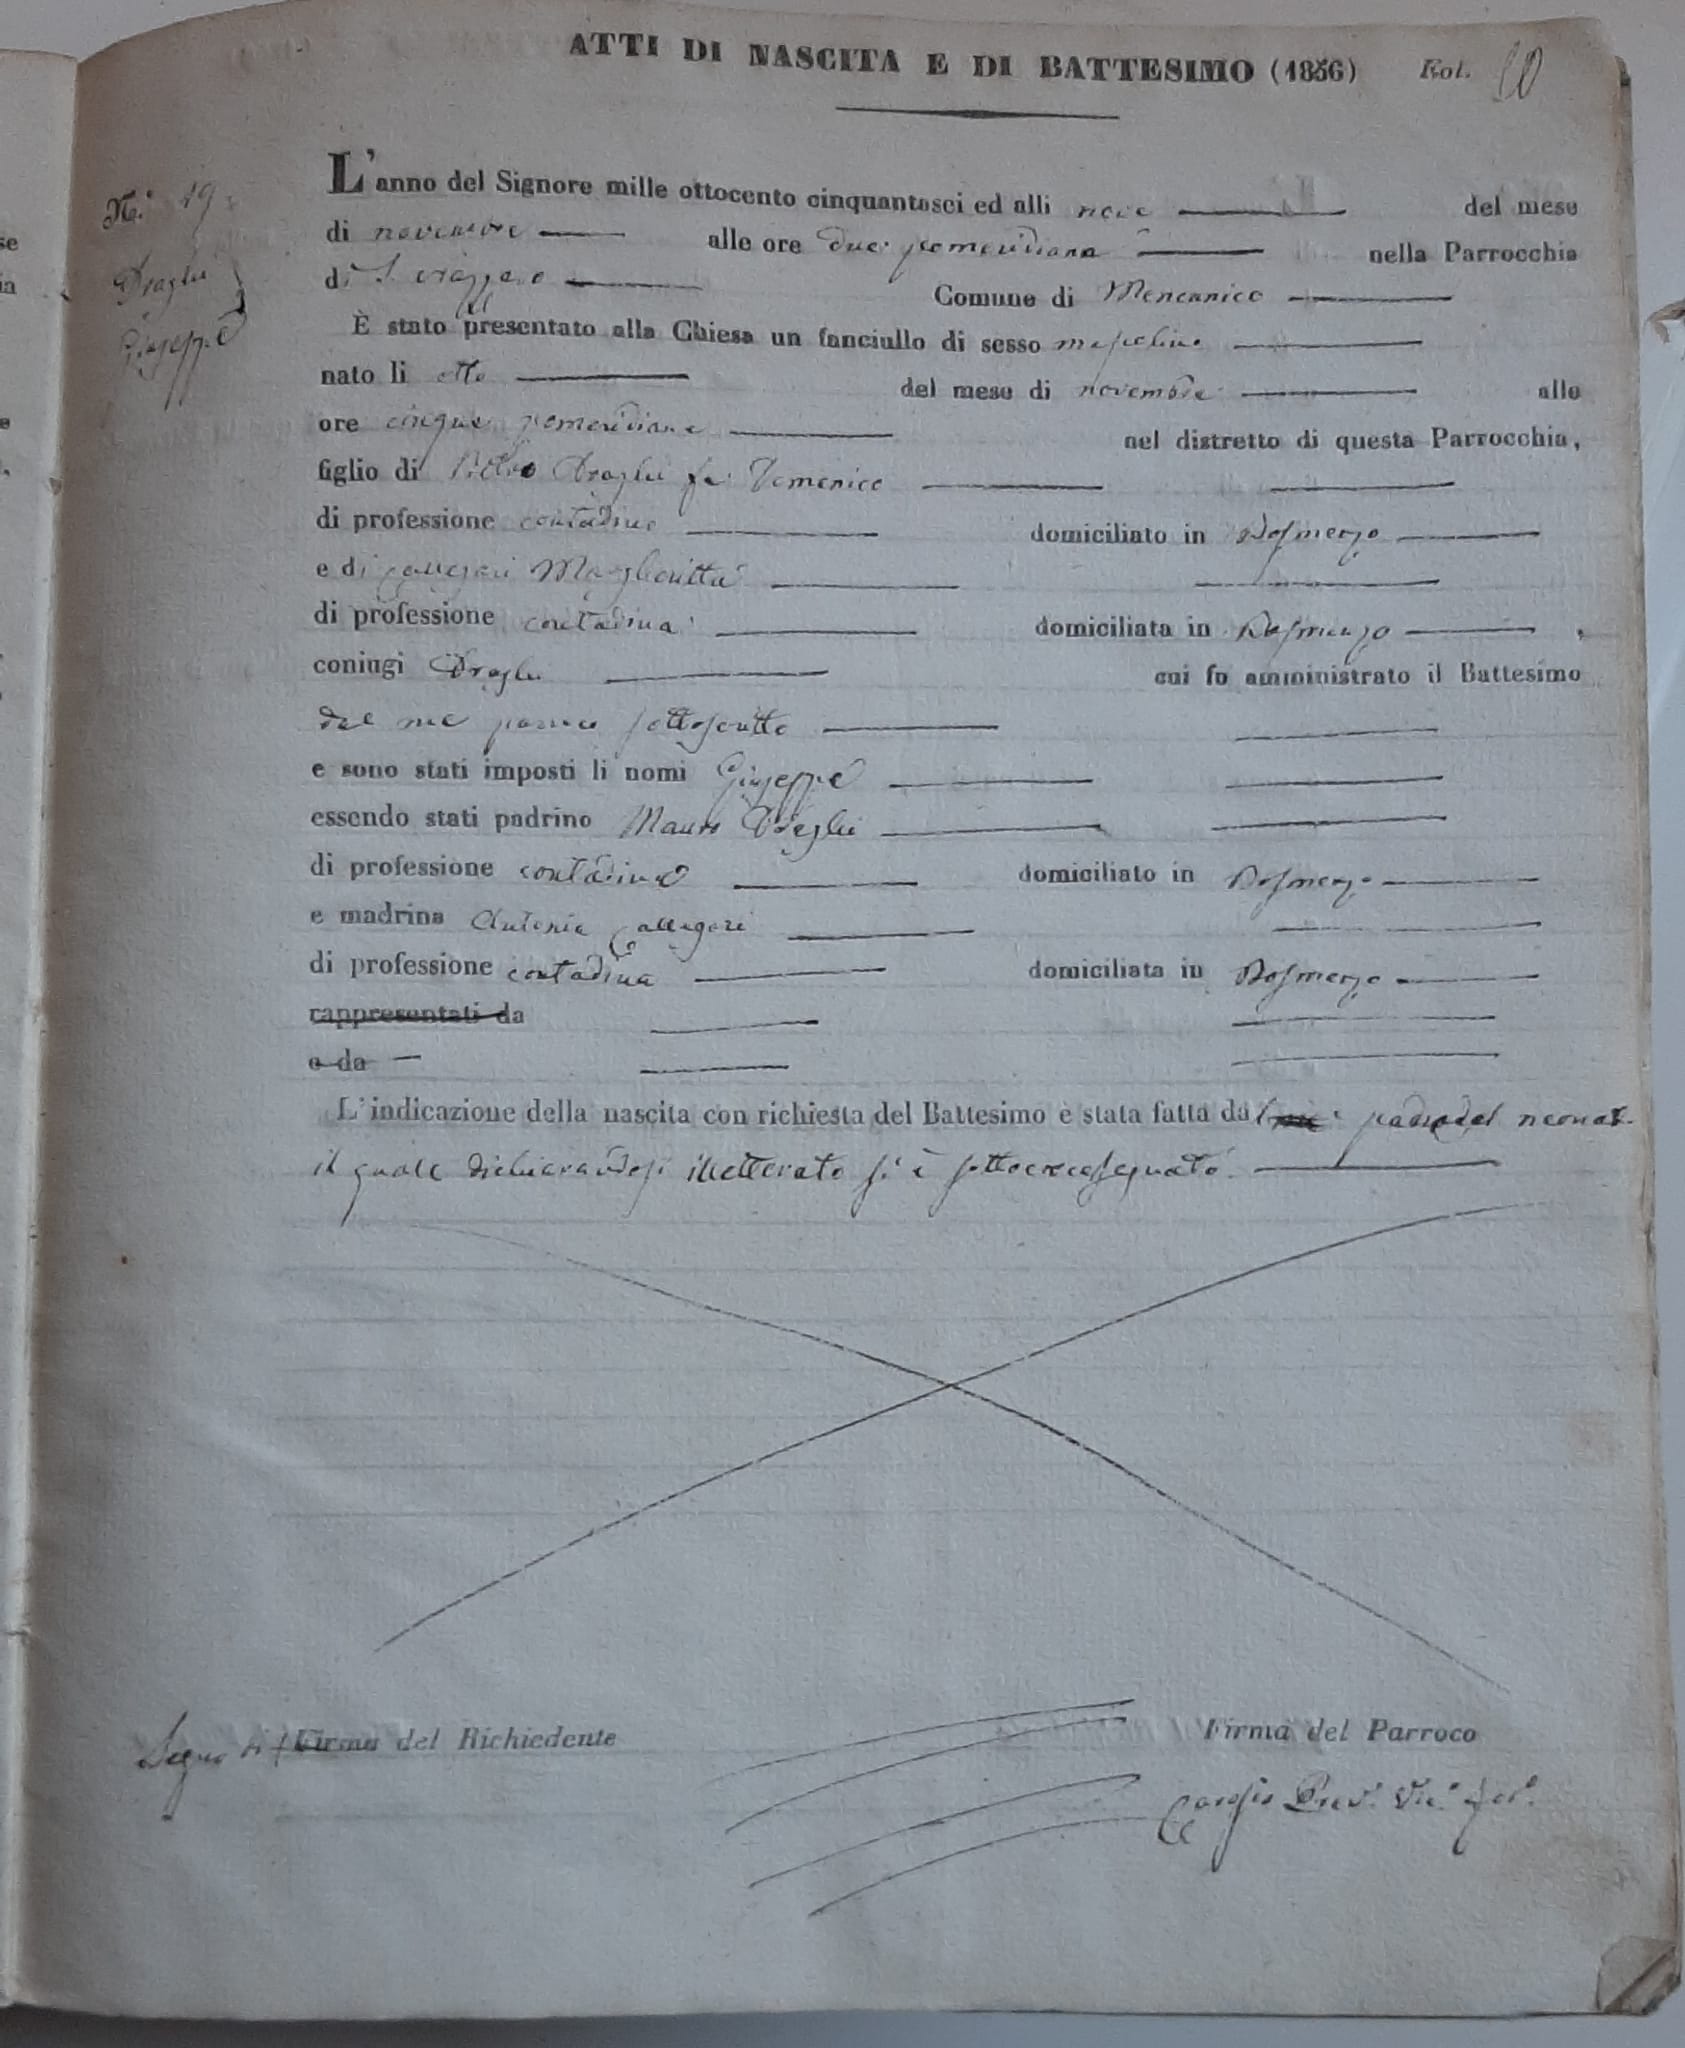 ATTI DI NASCITA E DI BATTESIMO (1856) Fol. 10
N.° 19
Draghi
Giuseppe
L'anno del Signore mille ottocento cinquantasei ed alli nove del mese
di novembre alle ore due pomeridiana nella Parrocchia
di S. Comune di Menconico
È stato presentato alla Chiesa un fanciullo di sesso mascolino
nato li otto del mese di novembre alle
ore cinque pomeridiane nel distretto di questa Parrocchia,
figlio di Pietro Draghi fu Domenico
di professione contadino domiciliato in Dosmenzo
e di Callegari Margheritta
di professione contadina domiciliata in Dosmenzo,
coniugi Draghi cui fu amministrato il Battesimo
dal me parroco sottoscritto
e sono stati imposti li nomi Giuseppe
essendo stati padrino Mauro Draghi
di professione contadino domiciliato in Dosmenzo
e madrina Antonia Callegari
di professione contadina domiciliata in Dosmenzo
rappresentati da
e da
L'indicazione della nascita con richiesta del Battesimo è stata fatta dal padre del neonato
il quale dichiarandosi illetterato si è sottocrocesegnato
Segno di + Firma del Richiedente Firma del Parroco
Prev.° Vic.° For.°